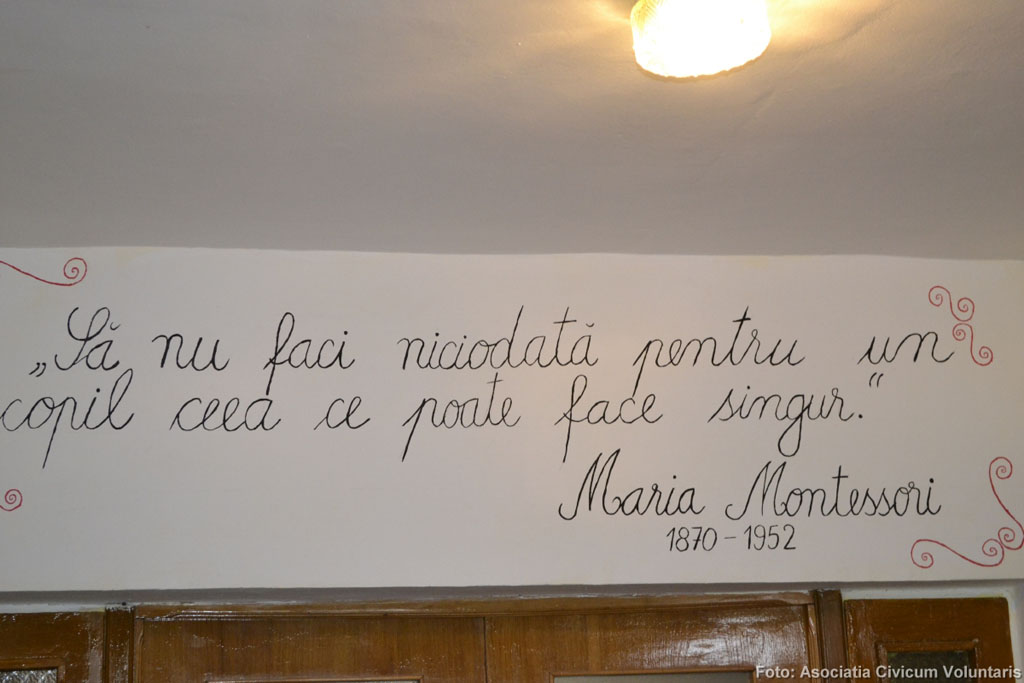 „Să nu faci niciodată pentru un
copil ceea ce poate face singur.“
Maria Montessori
1870 - 1952
Foto: Asociatia Civicum Voluntaris